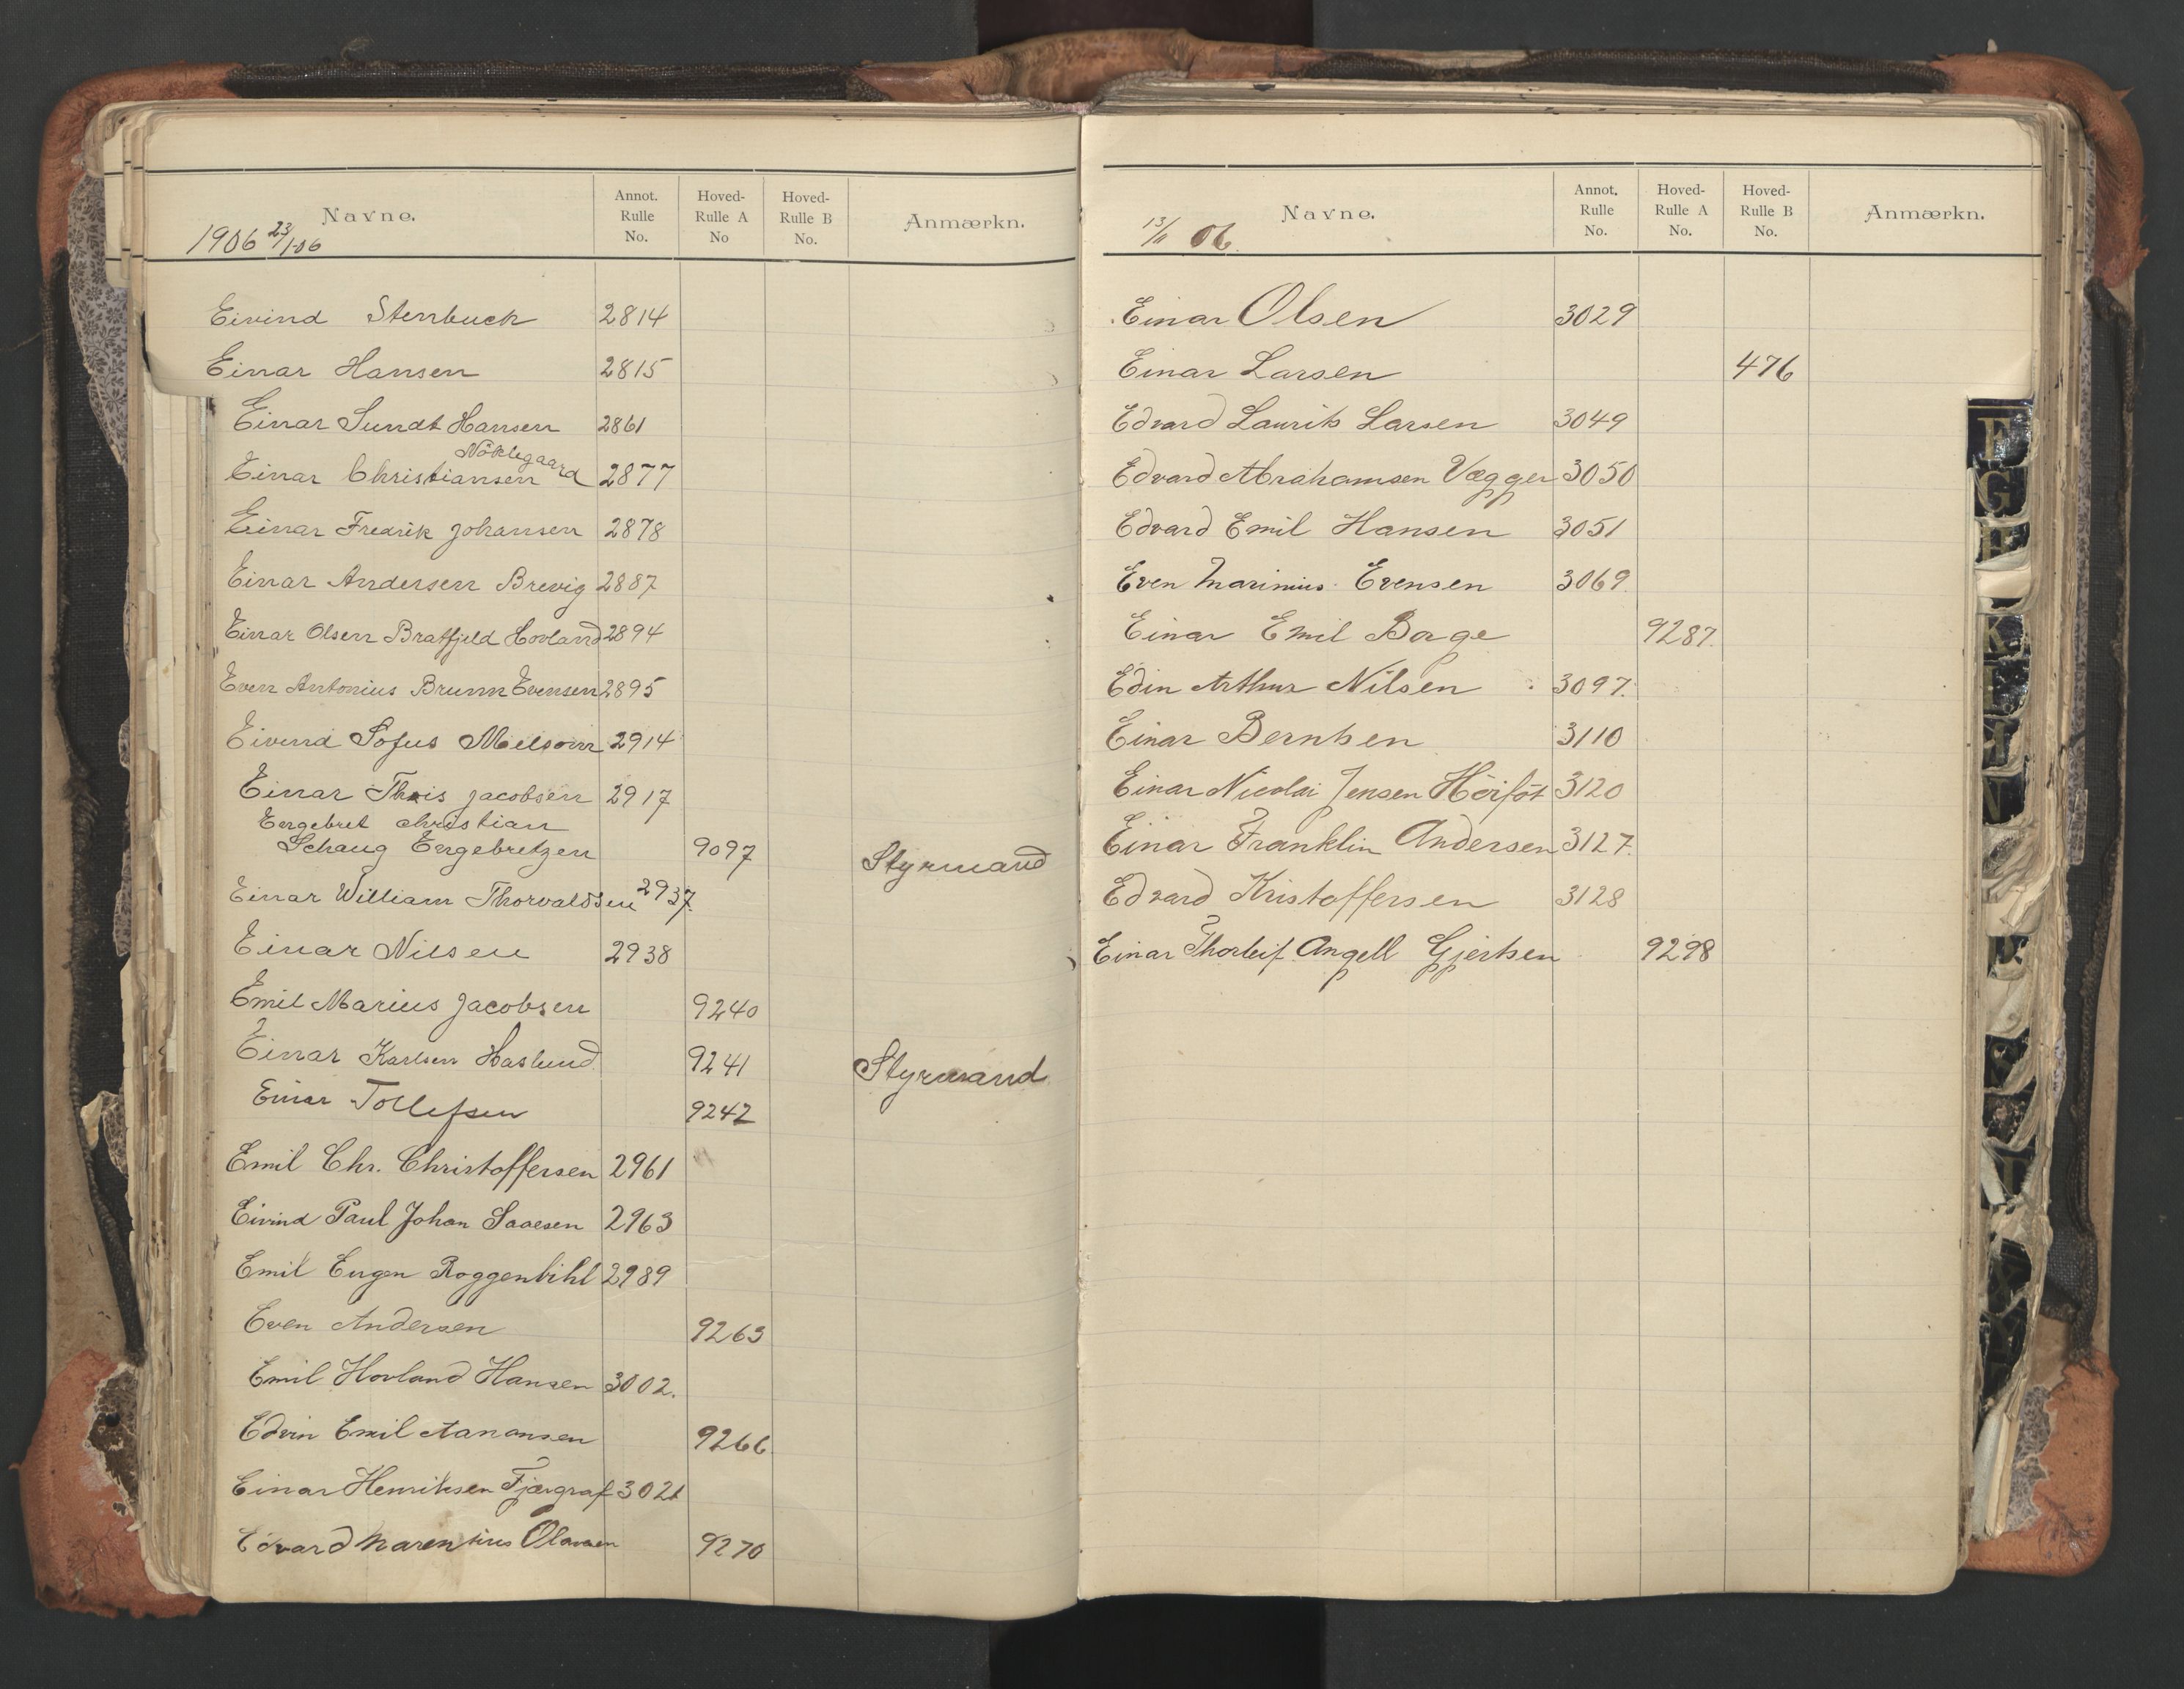 Navne. Annot. Rulle No. Hoved-Rulle A No Hoved-Rulle B No. Anmærkn.
1906 23/1 06
Eivind Stenbuck 2814
Einar Hansen 2815
Einar Sundt Hansen 2861
Nöklegaard
Einar Christiansen 2877
Einar Fredrik Johansen 2878
Einar Andersen Brevig 2887
Einar Olsen Bratfjeld Hovland 2894
Even Antonius Brunn Evensen 2895
Eivind Sofus Melsom 2914
Einar Thois Jacobsen 2917
Engebret Christian
Schaug Engebretzen 9097 Styrmand
Einar William Thorvaldsen 2937.
Einar Nilsen 2938
Emil Marius Jacobsen 9240
Einar Karlsen Haslund 9241 Styrmand
Einar Tollefsen 9242
Emil Chr. Christoffersen 2961
Eivind Paul Johan Saaesen 2963
Emil Eugen Roggenbihl 2989
Even Andersen 9263
Emil Hovland Hansen 3002.
Edvin Emil Aanonsen 9266
Einar Henriksen Fjærgraf 3021
Edvard Marentius Olavsen 9270
Navne. Annot. Rulle No. Hoved-Rulle A No. Hoved-Rulle B No. Anmærkn.
13/11 06.
Einar Olsen 3029
Einar Larsen 476
Edvard Laurits Larsen 3049
Edvard Abrahamsen Vægger 3050
Edvard Emil Hansen 3051
Even Marinius Evensen 3069.
Einar Emil Borge 9287.
Edin Arthur Nilsen 3097.
Einar Berntsen 3110
Einar Nicolai Jensen Höiföt 3120
Einar Franklin Andersen 3127.
Edvard Kristoffersen 3128
Einar Thorleif Angell Gjertsen 9298
F
G
H
K